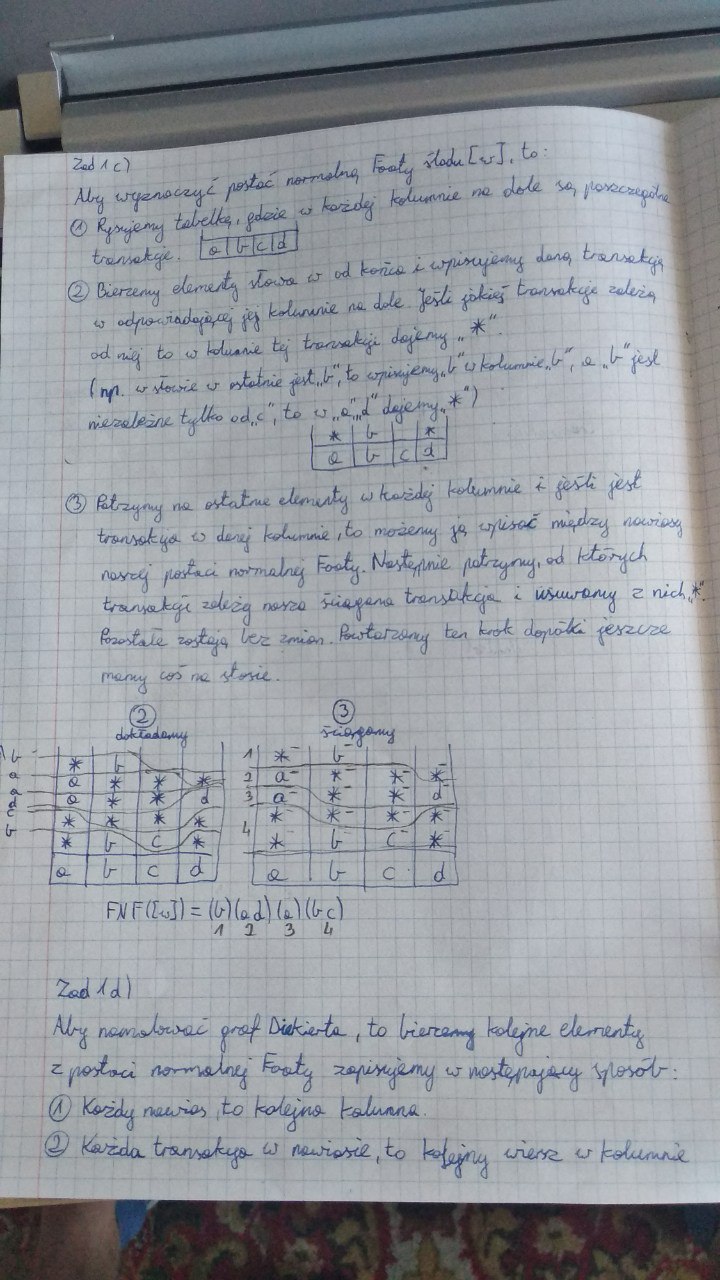 Zad 1 c)
Aby wyznaczyć postać normalną Foaty śladu [w], to:
① Rysujemy tabelkę, gdzie w każdej kolumnie na dole są poszczególne
transakcje. a b c d
② Bierzemy elementy słowa w od końca i wpisujemy daną transakcję
w odpowiadającej jej kolumnie na dole. Jeśli jakieś transakcje zależą
od niej to w kolumnie tej transakcji dajemy „*".
(np. w słowie w ostatnie jest „b", to wpisujemy „b" w kolumnie „b", a „b" jest
niezależne tylko od „c", to w „a", „d" dajemy „*")
* b *
a b c d
③ Patrzymy na ostatnie elementy w każdej kolumnie i jeśli jest
transakcja w danej kolumnie, to możemy ją wpisać między nawiasy
naszej postaci normalnej Foaty. Następnie patrzymy, od których
transakcji zależy nasza ściągana transakcja i usuwamy z nich „*".
Pozostałe zostają bez zmian. Powtarzamy ten krok dopóki jeszcze
mamy coś na stosie.
② ③
dokładamy ściągamy
b * b
a a * * *
a a * * d
d * * * *
c
b * b c *
a b c d
1 *⁻ b⁻
2 a⁻ *⁻ *⁻ *⁻
3 a⁻ *⁻ *⁻ d⁻
*⁻ *⁻ *⁻ *⁻
4 *⁻ b⁻ c⁻ *⁻
a b c d
FNF([w]) = (b)(ad)(a)(bc)
1 2 3 4
Zad 1 d)
Aby namalować graf Diekierta, to bierzemy kolejne elementy
z postaci normalnej Foaty zapisujemy w następujący sposób:
① Każdy nawias, to kolejna kolumna.
② Każda transakcja w nawiasie, to kolejny wiersz w kolumnie